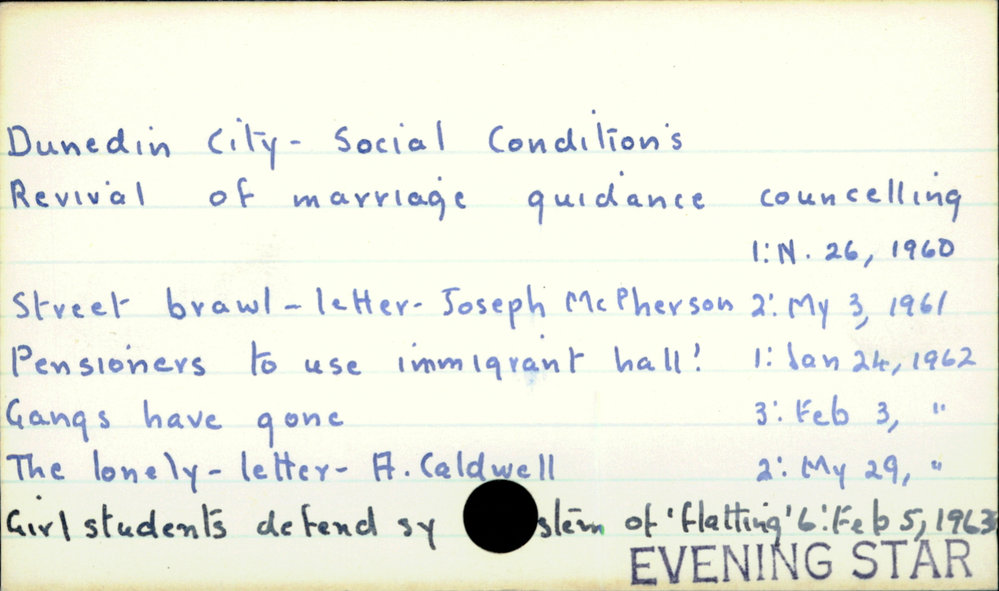 Dunedin City - Social Conditions
Revival of marriage guidance councelling
1: N. 26, 1960
Street brawl - letter - Joseph McPherson 2: My 3, 1961
Pensioners to use immigrant hall! 1: Jan 24, 1962
Gangs have gone 3: Feb 3, "
The lonely - letter - A. Caldwell 2: My 29, "
Girl students defend sy stem of 'flatting' 6: Feb 5, 1963
EVENING STAR